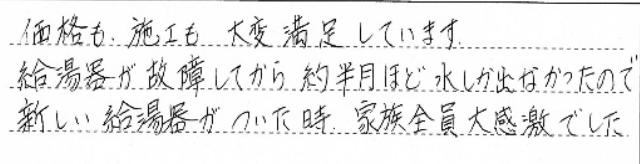 価格も、施工も 大変満足しています
給湯器が故障してから 約半月ほど 水しか出なかったので
新しい給湯器がついた時、家族全員大感激でした